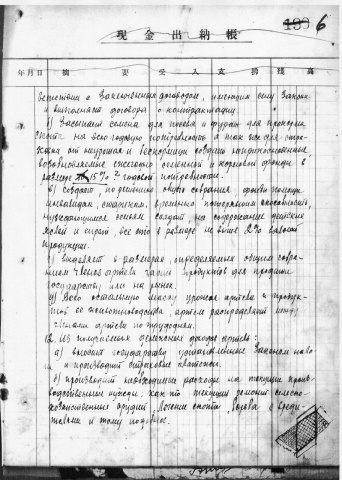 現金出納帳
193 6
年月日 摘要 受入 支拂 殘高
ветствии с заключенным договором, имеющим силу Закона
и выполняет договора о контрактации.
б) Засыпает семена для посева и фураж для прокорма
скота на всю годовую потребность, а так же для стра-
ховки от неурожая и бескормицы создает неприкосновенные
возобновляемые ежегодно семенной и кормовой фонды в
размере 15% годовой потребности.
в) создает по решению общего собрания фонды помощи
инвалидам, старикам, временно потерявшим способность,
нуждающимся семьям на содержание детских
яслей и сирот все это в размере не выше 2% валовой
продукции.
г) выделяет в размерах, определяемых общим собра-
нием членов артели часть продуктов для продажи
государству или на рынок.
д) Всю остальную массу урожая артели и продук-
тов ее животноводства, артель распределяет между
членами артели по трудодням.
12. Из получаемых денежных доходов артель:
а) вносит государству установленные Законом нало-
ги и производит страховые платежи.
б) производит необходимые расходы на текущие произ-
водственные нужды, как то текущий ремонт сельско-
хозяйственных орудий, лечение скота, борьба с вреди-
телями и тому подобное.